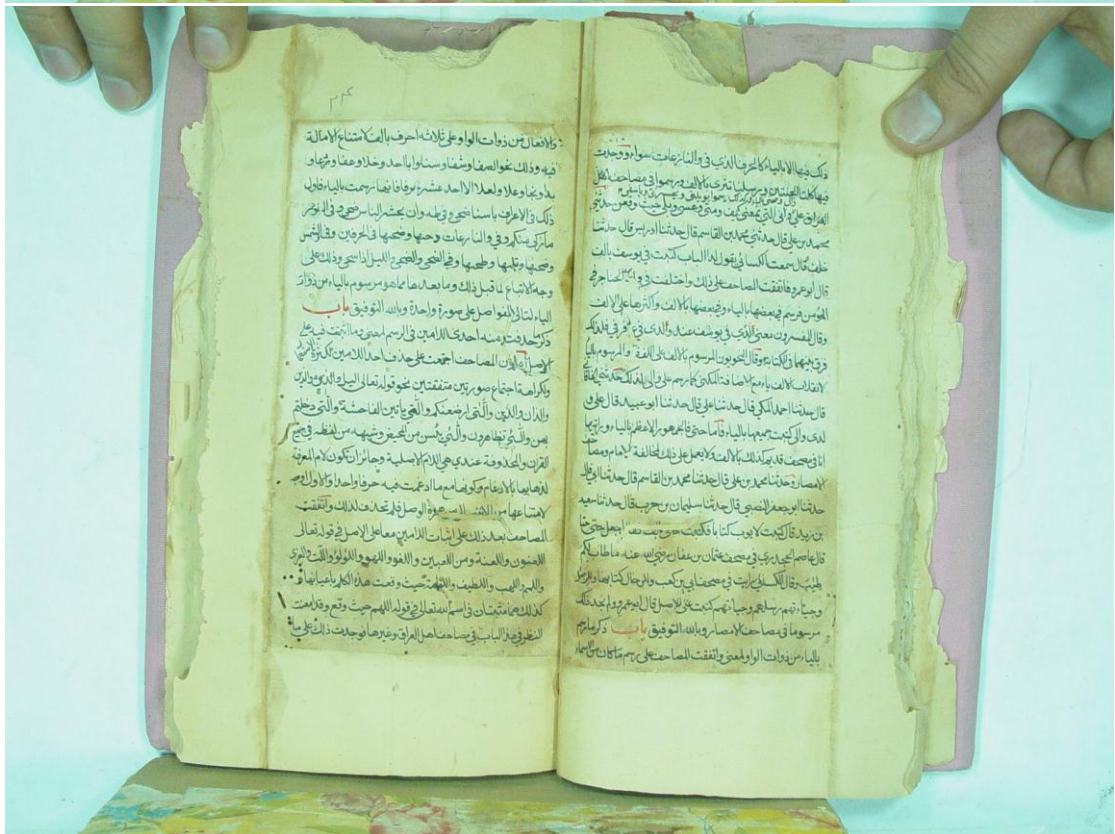 ذلك فيها الا بالياء كالحرف الذي في والنازعات سواء ووجدت
فيها كلتا الجنتين ورسلنا تترى بالالف ورسموا في مصاحف اهل
العراق على والى التي بمعنى كيف ومتى وعسى وبلى حيث وقعن حدثني
محمد بن علي قال حدثني محمد بن القاسم قال حدثنا ادريس قال حدثنا
خلف قال سمعت الكسائي يقول لدا الباب كتبت في يوسف بالف
قال ابو عمرو فاتفقت المصاحف على ذلك واختلفت في لدى الحناجر في
المؤمن فرسم في بعضها بالياء وفي بعضها بالالف واكثرها على الالف
وقال المفسرون معنى الذي في يوسف عند والذي في غافر في فلذلك
فرق بينهما في الكتابة وقال النحويون المرسوم بالالف على اللفظ والمرسوم بالياء
لانقلاب الالف ياء مع الاضافة المكنى كما رسم على والى لذلك حدثني الخاقاني
قال حدثنا احمد المكي قال حدثنا علي قال حدثنا ابو عبيد قال على و
لدى والى كتبت جميعها بالياء فاما حتى فالجمهور الاعظم بالياء ورايتها
انا في مصحف قديم كذلك بالالف ولا يعمل على ذلك لمخالفة الامام ومصاحف
الامصار وحدثنا محمد بن علي قال حدثنا محمد بن القاسم قال حدثنا ابي قال
حدثنا ابو جعفر النصبي قال حدثنا سليمان بن حرب قال حدثنا سعيد
بن زيد قال كتبت لايوب كتابا فكتبت حتى بالف فقال اجعل حتى حتا
قال عاصم الجحدري في مصحف عثمان بن عفان رضي الله عنه ما طاب لكم
طيب وقال الكسائي رايت في مصحف ابي بن كعب وللرجال كتابها وللرجيل
وجياتهم رسلهم وجياتهم كتبت على الاصل قال ابو عمرو ولم نجد ذلك
مرسوما في مصاحف الامصار وبالله التوفيق باب ذكر ما رسم
بالياء من ذوات الواو لمعنى واتفقت المصاحف على رسم ما كان من الاسماء
٣٤
والافعال من ذوات الواو على ثلاثة احرف بالف لامتناع الامالة
فيه وذلك نحو الصفا وشفا وسنا وابا احد وخلا وعفا ودعا و
بدا ونجا وعلا ولعلا الا احد عشر حرفا فانها رسمت بالياء فاول
ذلك في الاعراف باسنا ضحى وفي طه وان يحشر الناس ضحى وفي النور
ما زكى منكم وفي والنازعات دحها وضحها في الحرفين وفي والشمس
وضحها وتلها وطحها وفي الضحى والضحى والليل اذا سجى وذلك على
وجه الاتباع لما قبل ذلك وما بعده مما هو مرسوم بالياء من ذوات
الياء لتاتي الفواصل على سورة واحدة وبالله التوفيق باب
ذكر ما حذفت منه احدى اللامين في الرسم لمعنى وما اثبتت فيه على
الاصل اعلم ان المصاحف اجتمعت على حذف احد اللامين لكثرة
ولكراهة اجتماع صورتين متفقتين نحو قوله تعالى اليل والذي والذن
والذان والذين والتي ارضعنكم والتي ياتين الفاحشة والتي دخلتم
بهن والئي تظاهرون والئي يئسن من المحيض وشبهه من لفظه في جميع
القران والمحذوفة عندي هي اللام الاصلية وجائز ان تكون لام المعرفة
لذهابها بالادغام وكونها مع ما ادغمت فيه حرفا واحدا والاول اوجه
لامتناعها من الانفصال من همزة الوصل فلم تحذف لذلك واتفقت
المصاحف بعد ذلك على اثبات اللامين معا على الاصل في قوله تعالى
اللعنون واللعنة ومن اللعبين واللغو واللهو واللؤلؤ واللت والعزى
واللمم واللهب واللطيف واللوامة حيث وقعت هذه الكلم باعيانها و
كذلك هما مثبتتان في اسم الله تعالى وفي قوله اللهم حيث وقع وقد امعنت
النظر في هذا الباب في مصاحف اهل العراق وغيرها فوجدت ذلك على ما